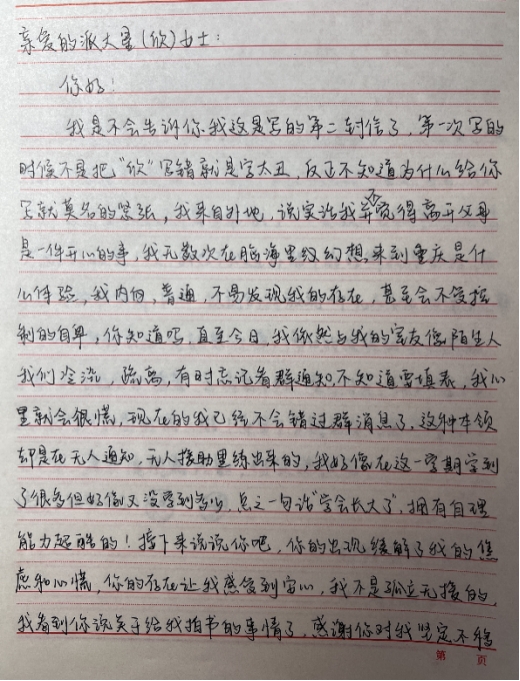 亲爱的派大星(欣)女士:
你好:
我是不会告诉你我这是写的第二封信了,第一次写的
时候不是把"欣"写错就是字太丑,反正不知道为什么给你
写就莫名的紧张,我来自外地,说实话我并不觉得离开父母
是一件开心的事,我无数次在脑海里纹幻想来到重庆是什
么体验,我内向,普通,不易发现我的存在,甚至会不受控
制的自卑,你知道吗,直至今日,我依然与我的室友像陌生人
我们冷淡,疏离,有时忘记看群通知,不知道要填表,我心
里就会很慌,现在的我已经不会错过群消息了,这种本领
却是在无人通知,无人援助里练出来的,我好像在这一学期学到
了很多但好像又没学到多少,总之一句话"学会长大了",拥有自理
能力超酷的!接下来说说你吧,你的出现缓解了我的焦
虑和心慌,你的存在让我感受到安心,我不是孤立无援的,
我看到你说关于给我拍书的事情了,感谢你对我坚定不移
第 页